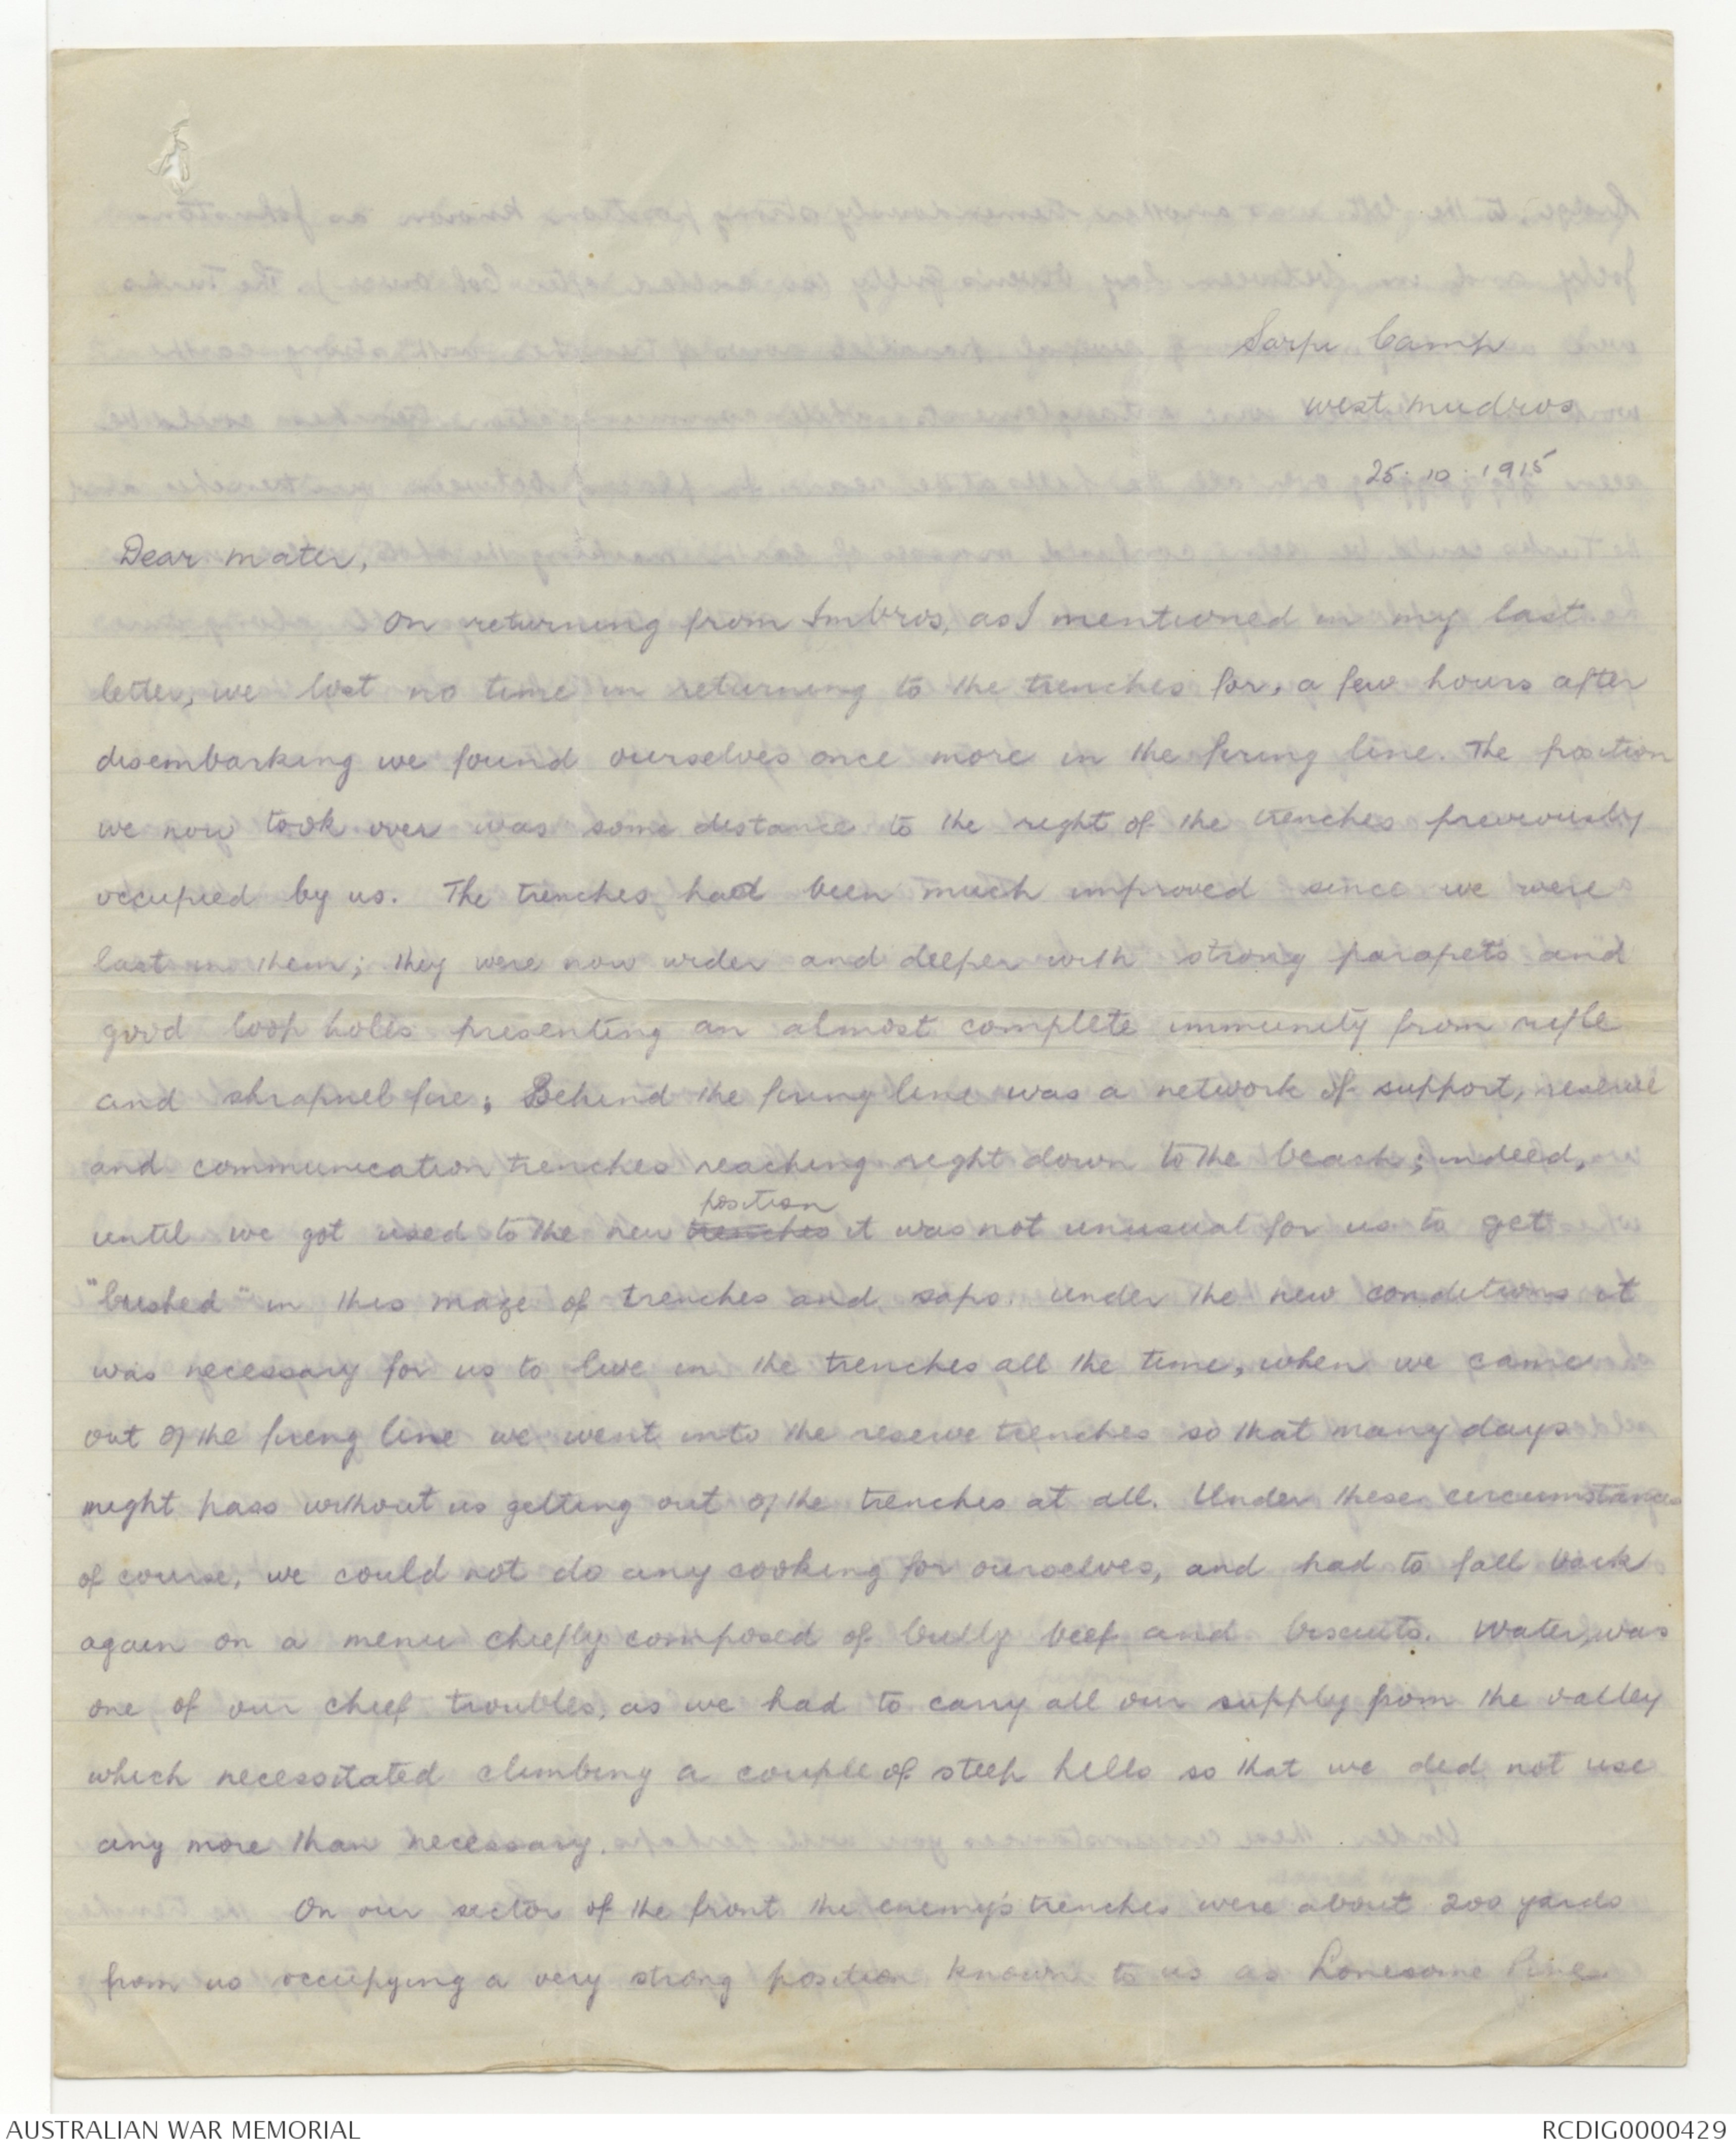 Sarpi Camp
West Mudros
25.10.1915
Dear Mater,
On returning from Imbros, as I mentioned in my last
letter, we lost no time in returning to the trenches for, a few hours after
disembarking we found ourselves once more in the firing line. The position
we now took over was some distance to the right of the trenches previously
occupied by us. The trenches had been much improved since we were
last in them; they were now wider and deeper with strong parapets and
good loop holes presenting an almost complete immunity from rifle
and shrapnel fire; Behind the firing line was a network of support, reserve
and communication trenches reaching right down to the beach; indeed,
position
until we got used to the new trenches it was not unusual for us to get
"bushed" in this maze of trenches and saps. Under the new conditions it
was necessary for us to live in the trenches all the time, when we came
out of the firing line we went into the reserve trenches so that many days
might pass without us getting out of the trenches at all. Under these circumstances
of course, we could not do any cooking for ourselves, and had to fall back
again on a menu chiefly composed of bully beef and biscuits. Water, was
one of our chief troubles, as we had to carry all our supply from the valley
which necessitated climbing a couple of steep hills so that we did not use
any more than necessary.
On our sector of the front the enemy's trenches were about 200 yards
from us occupying a very strong position known to us as Lonesome Pine
AUSTRALIAN WAR MEMORIAL
RCDIG0000429